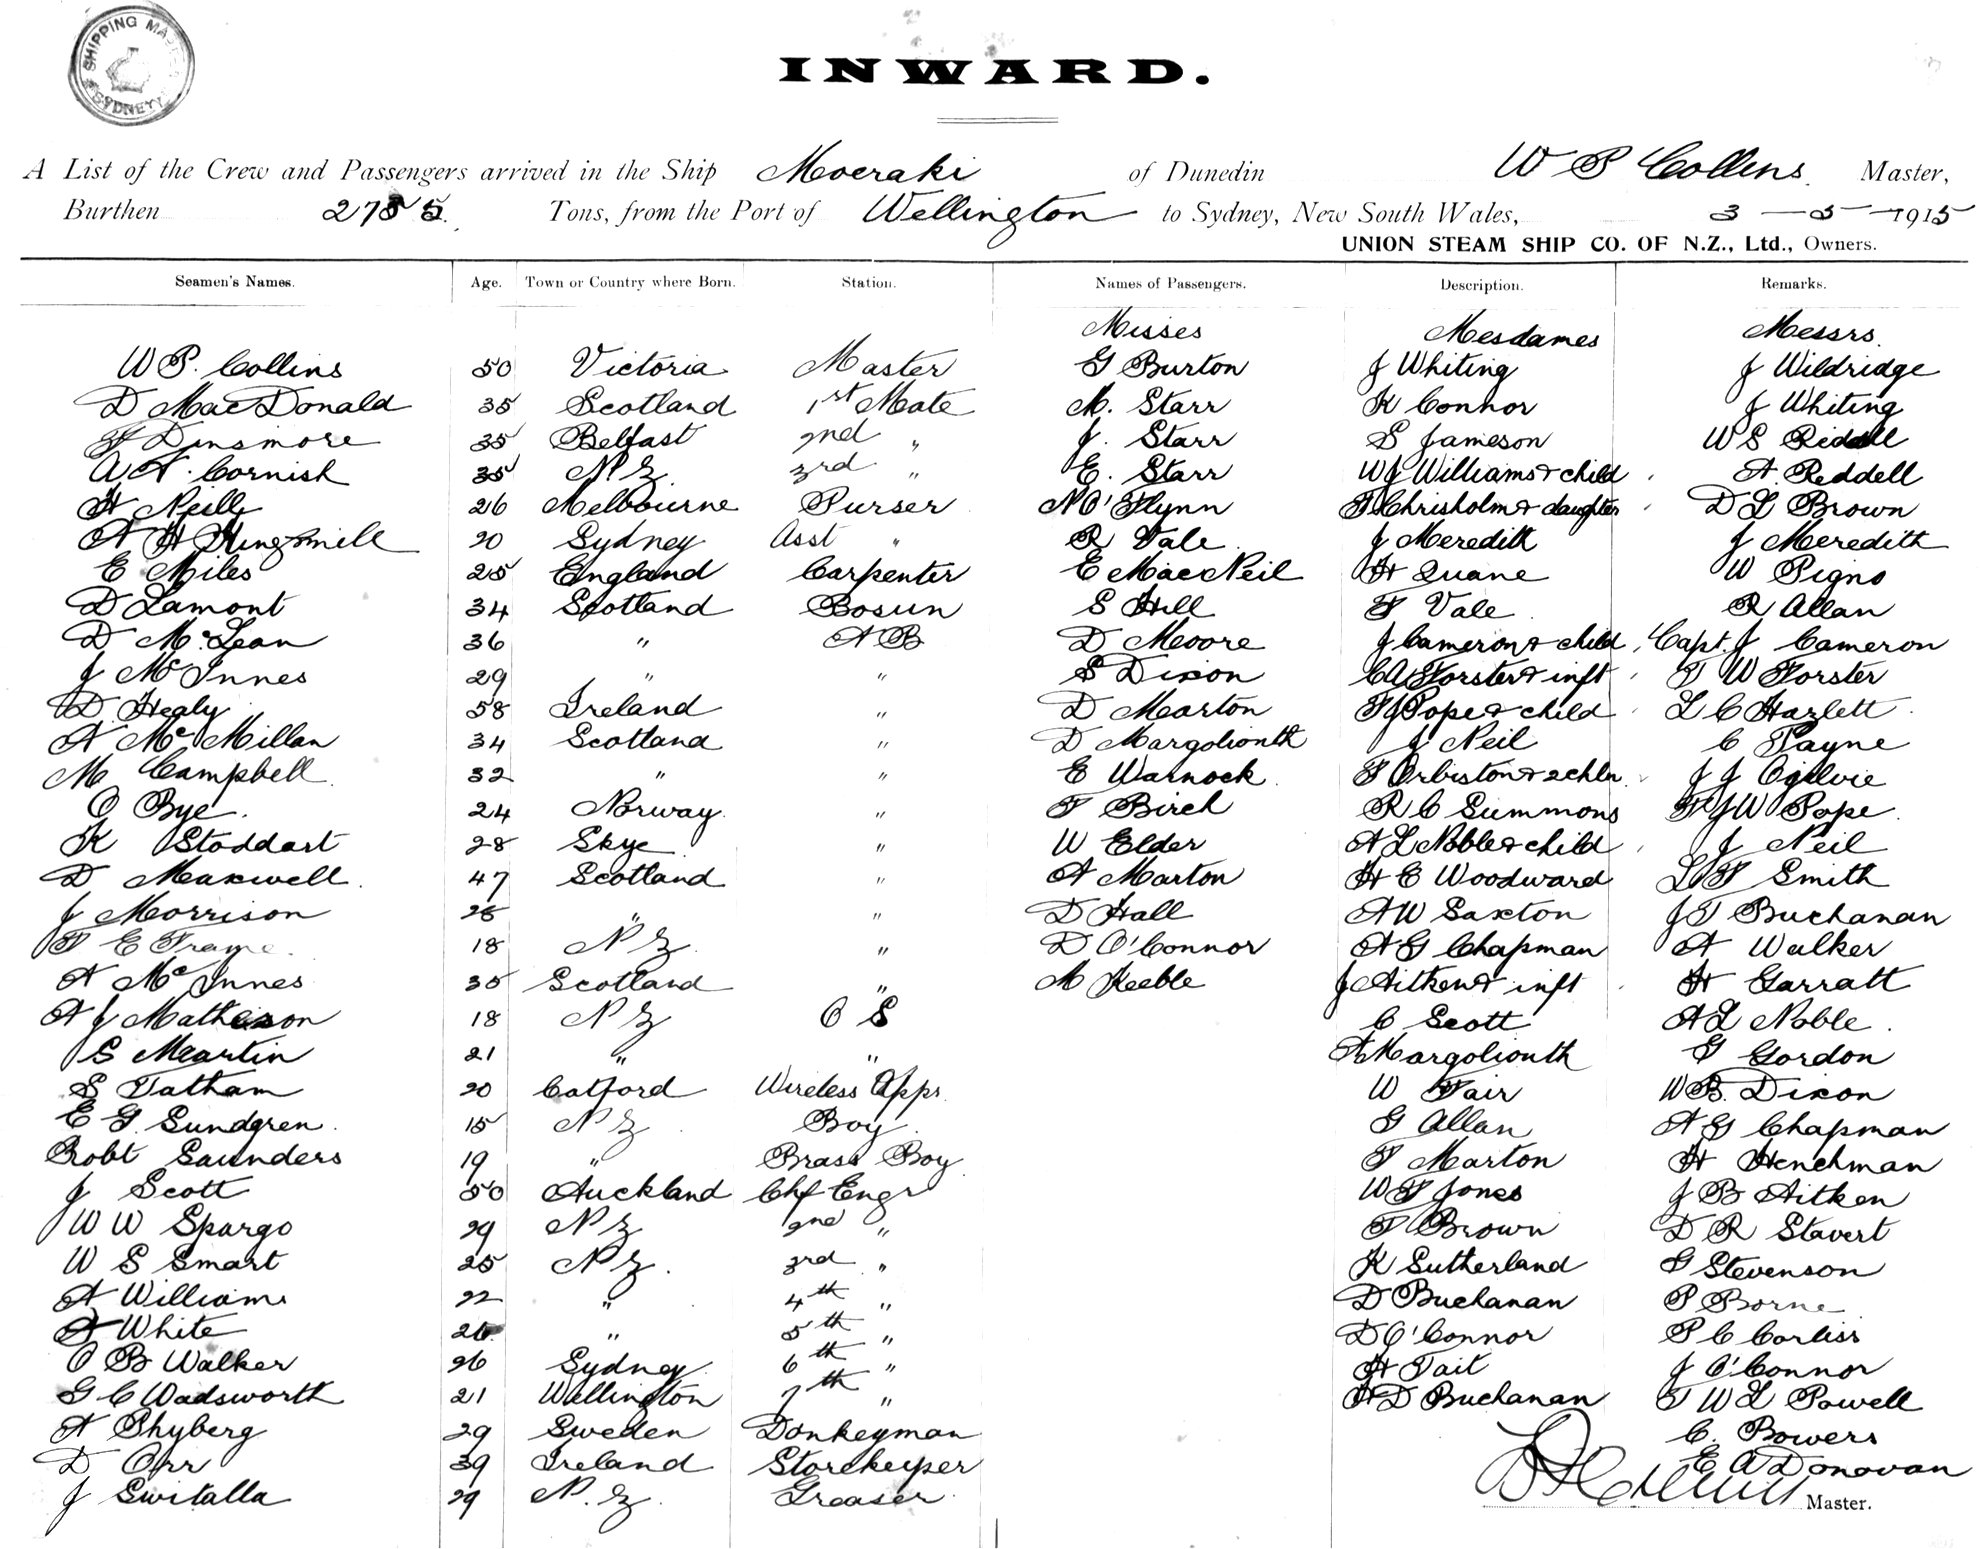 SHIPPING MASTER
SYDNEY
INWARD.
A List of the Crew and Passengers arrived in the Ship Moeraki of Dunedin W P Collins Master,
Burthen 2785 Tons, from the Port of Wellington to Sydney, New South Wales, 3 — 5 — 1915
UNION STEAM SHIP CO. OF N.Z., Ltd., Owners.
Seamen's Names. Age. Town or Country where Born. Station. Names of Passengers. Description. Remarks.
Misses Mesdames Messrs.
W P. Collins 50 Victoria Master G Burton J Whiting J Wildridge
D MacDonald 35 Scotland 1st Mate M. Starr K Connor J Whiting
F Dinsmore 35 Belfast 2nd " J. Starr S Jameson W S Riddell
A A. Cornish 35 N Z 3rd " E. Starr W J Williams & child A. Reddell
H Neill 26 Melbourne Purser N O'Flynn F Chrisholm & daughter D L Brown
A H Kingsmill 20 Sydney Asst " R Vale J Meredith J Meredith
E Miles 25 England Carpenter E MacNeil H Quane W Pigno
D Lamont 34 Scotland Bosun S Hill F Vale R Allan
D McLean 36 " A B D Moore J Cameron & child Capt. J Cameron
J McInnes 29 " " S Dixon C A Forster & inft T W Forster
D Healy 58 Ireland " D Marton F J Pope & child L C Hazlett
A McMillan 34 Scotland " D Margoliouth J Neil C Payne
M Campbell 32 " " E Warnock F Orbiston & 2 chln. J J Ogilvie
O Bye 24 Norway " F Birch R C Summons F J W Pope
K Stoddart 28 Skye " W Elder A L Noble & child J Neil
D Maxwell 47 Scotland " A Marton H C Woodward L F Smith
J Morrison 28 " " D Hall A W Saxton J T Buchanan
F E 18 N Z " D O'Connor A G Chapman A Walker
A McInnes 35 Scotland " M Keeble J Aitken & inft H Garratt
A J Matheson 18 N Z O S C Scott A L Noble
S Martin 21 " " A Margoliouth G Gordon
S Tatham 20 Catford Wireless Oppr. W Fair W B. Dixon
E G. Sundgren 15 N Z Boy G Allan A G Chapman
Robt Saunders 19 " Brass Boy F Marton H Henchman
J Scott 50 Auckland Chf Engr W F Jones J B Aitken
W W Spargo 29 N Z 2nd " F Brown D R Stavert
W S Smart 25 N Z 3rd " K Sutherland G Stevenson
A Williams 22 " 4th " D Buchanan P Borne
A White 26 " 5th " D O'Connor P C Corliss
O B Walker 26 Sydney 6th " H Tait J O'Connor
G C Wadsworth 21 Wellington 7th " H D Buchanan T W L Powell
A Phyberg 29 Sweden Donkeyman C. Bowers
D Orr 39 Ireland Storekeeper E A Donovan
J Switalla 29 N. Z. Greaser Master.